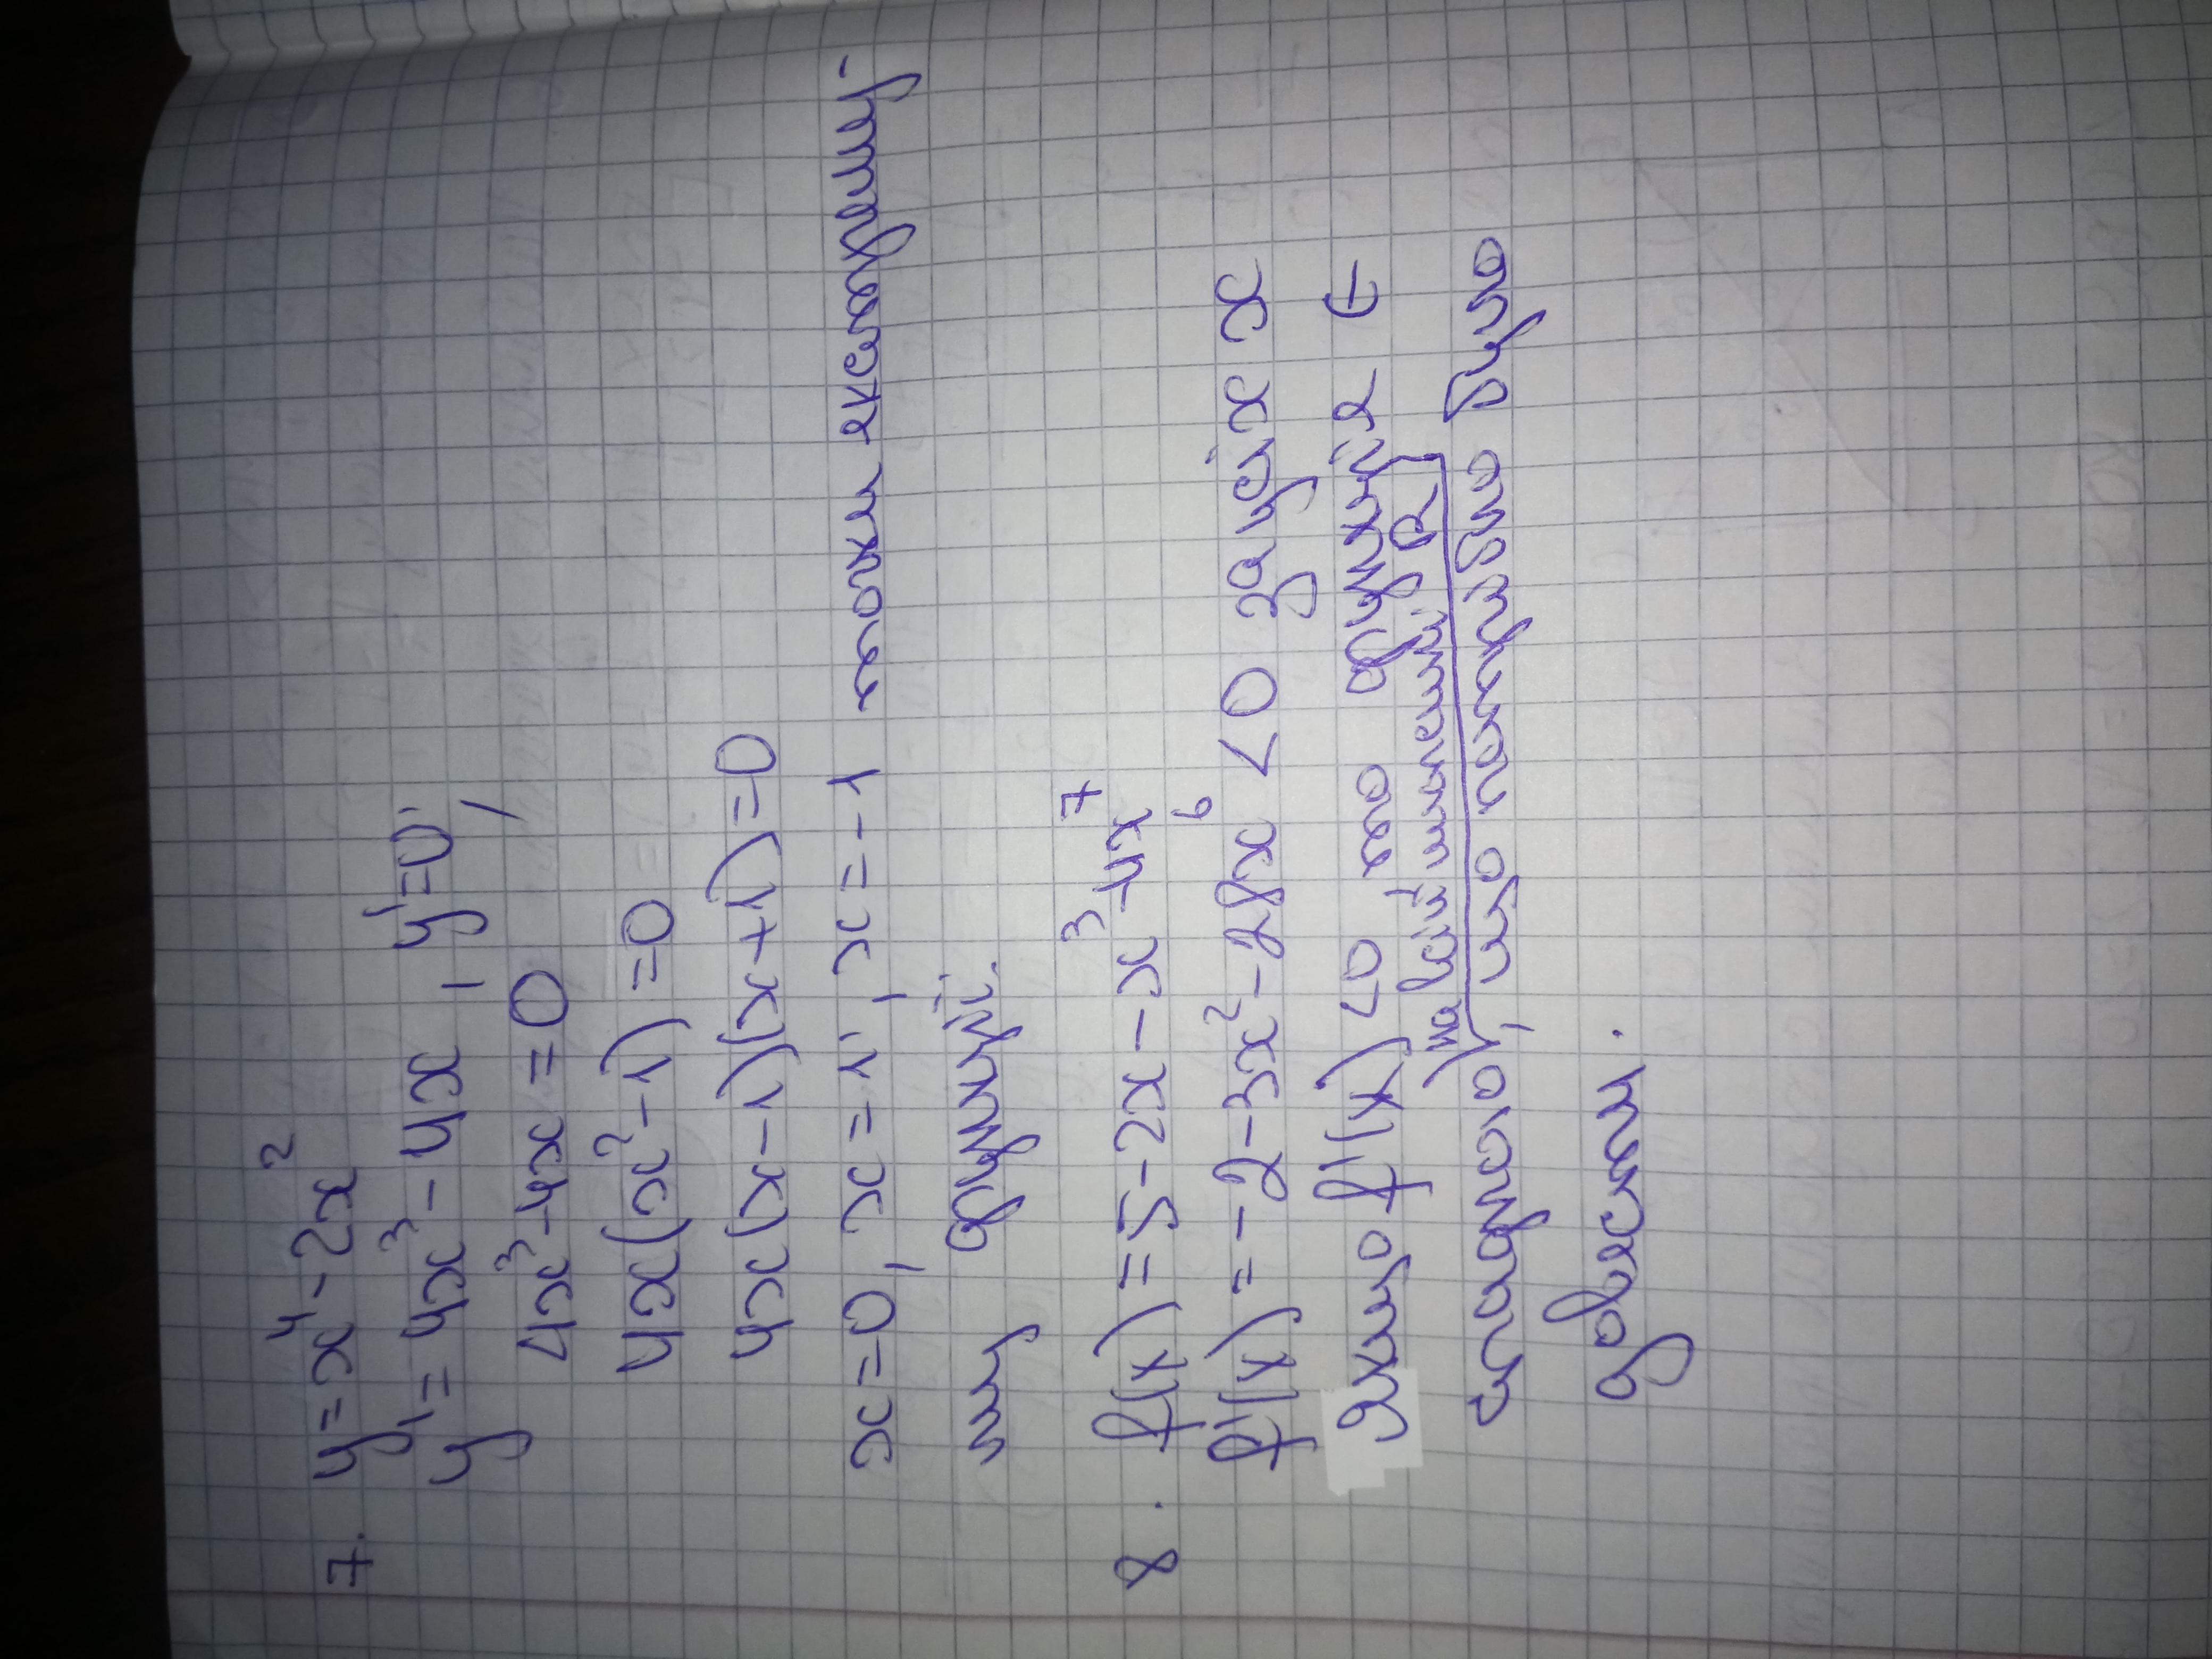 7. y=x⁴-2x²
y'=4x³-4x, y'=0;
4x³-4x=0
4x(x²-1)=0
4x(x-1)(x+1)=0
x=0, x=1, x=-1 точки екстрему-
му функції.
8. f(x)=5-2x-x³-4x⁷
f'(x)=-2-3x²-28x⁶<0 за усіх x
якщо f'(x)<0 то функція є
на всій множині R
спадною, що потрібно було
довести.